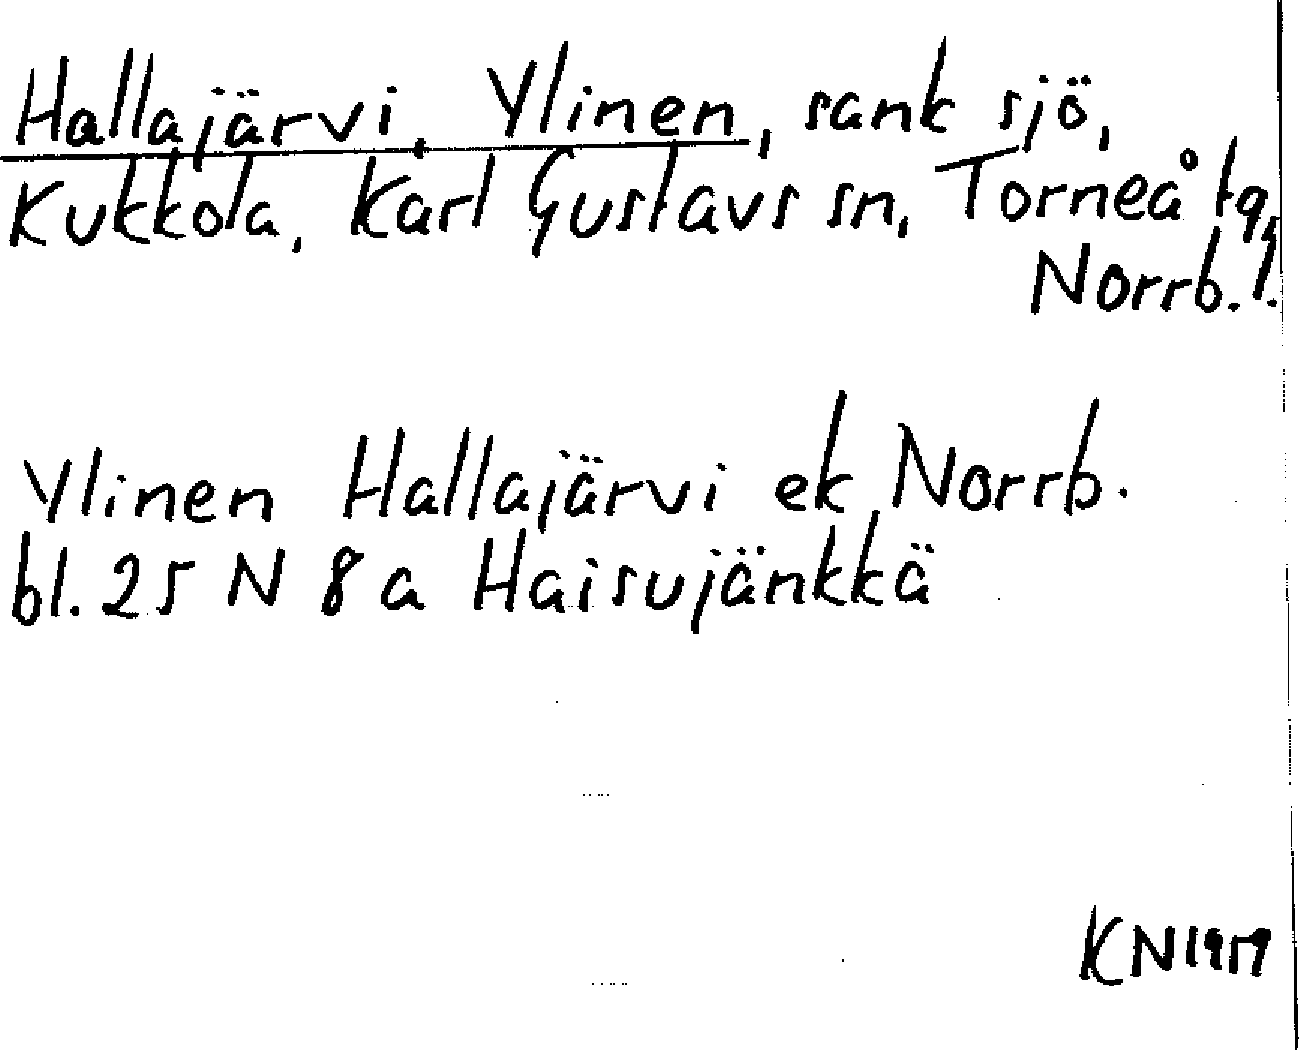 Hallajärvi, Ylinen, sank sjö,
Kukkola, Karl Gustavs sn, Torneå tg,
Norrb. l.
Ylinen Hallajärvi ek Norrb.
bl. 25 N 8 a Haisujänkkä
KN 1959